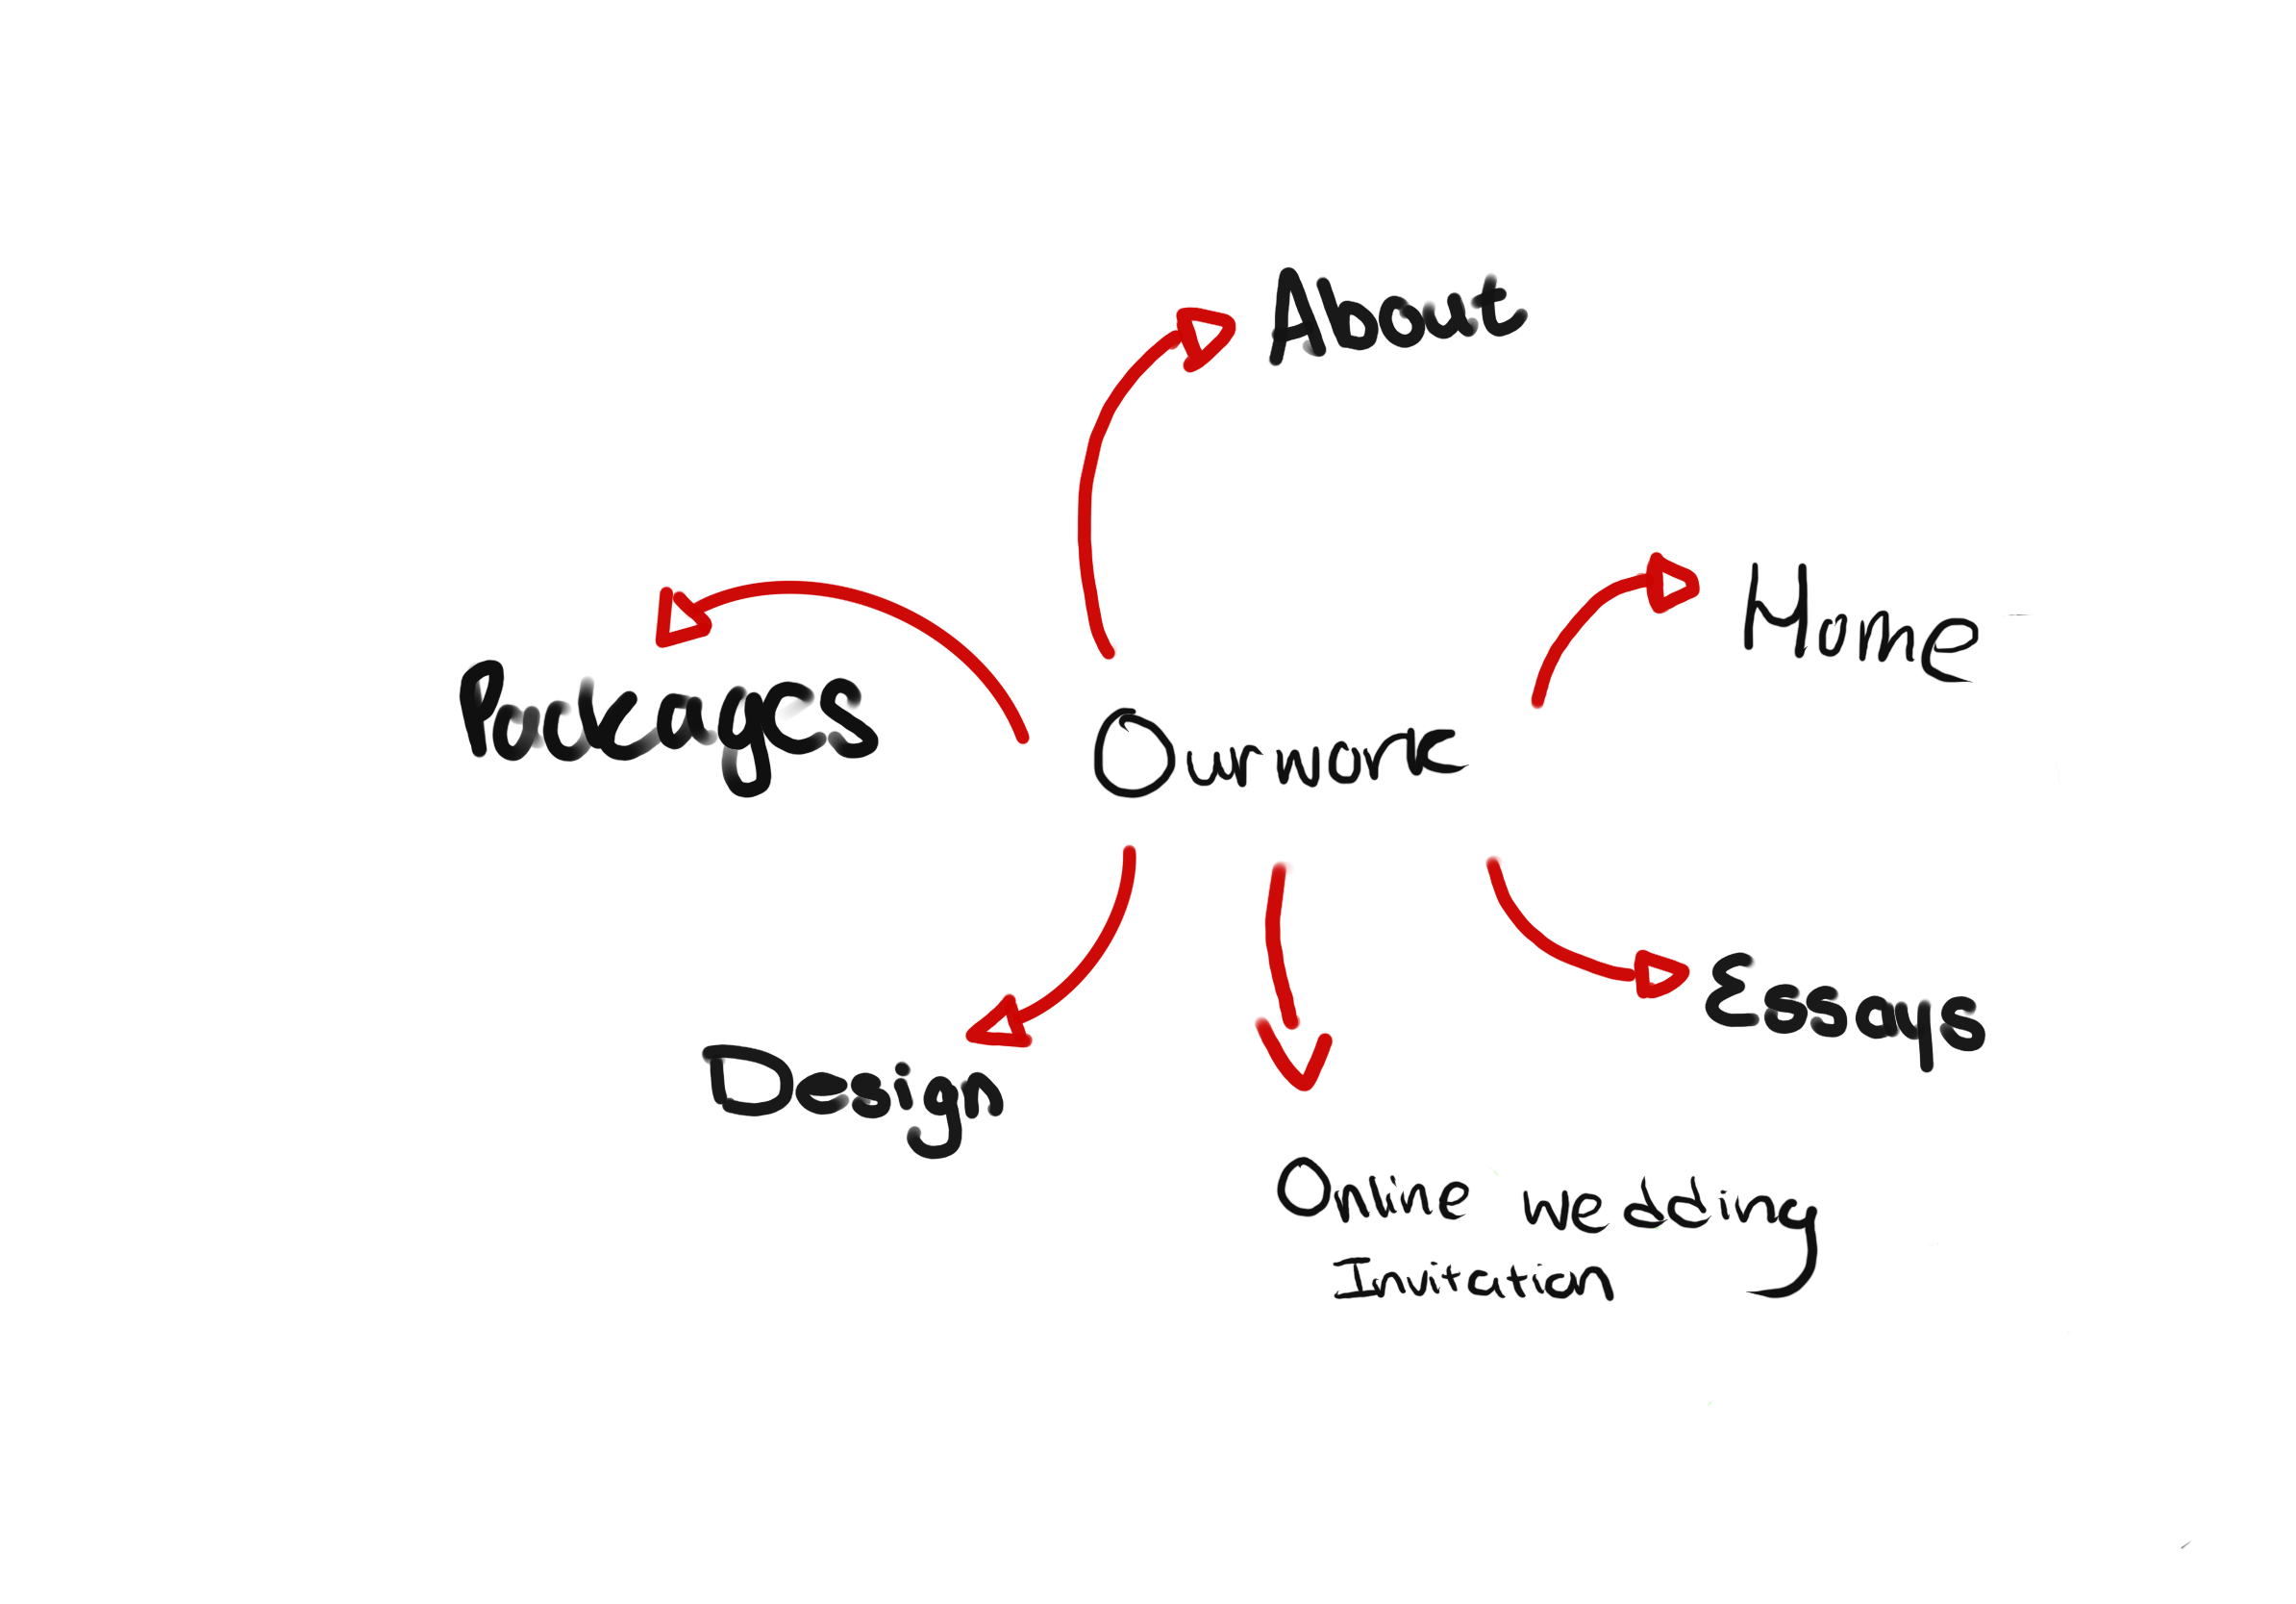 About
Home
Packages
Our work
Essays
Design
Online wedding
Invitation